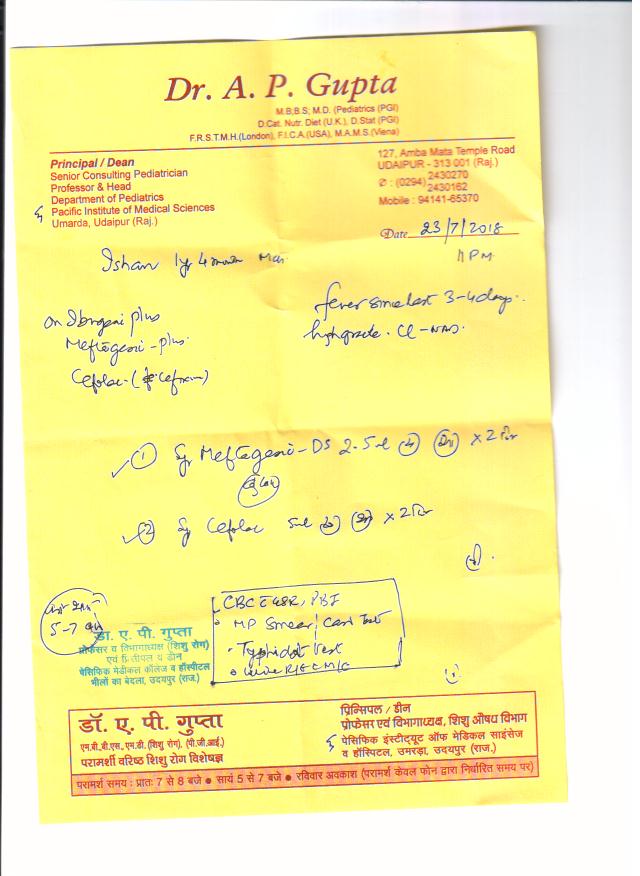 Dr. A. P. Gupta
M.B,B.S; M.D. (Pediatrics (PGI)
D.Cat. Nutr. Diet (U.K.), D.Stat (PGI)
F.R.S.T.M.H.(London), F.I.C.A.(USA), M.A.M.S.(Viena)
Principal / Dean
Senior Consulting Pediatrician
Professor & Head
Department of Pediatrics
Pacific Institute of Medical Sciences
Umarda, Udaipur (Raj.)
127, Amba Mata Temple Road
UDAIPUR - 313 001 (Raj.)
✆ : (0294) 2430270
2430162
Mobile : 94141-65370
Date 23/7/2018
Ishan 1yr 4 month
fever since last 3-4 days.
high grade.
on Ibugesic plus
Meftagesic - plus.
Cefolac -
① Syp Meftagesic - DS 2.5ml x 2 दिन
② Syp Cefolac 5ml x 2 दिन
5-7
CBC ESR, PBF
MP Smear / Card Test
Typhidot test
Urine R/E C M/C
डा. ए. पी. गुप्ता
प्रोफेसर व विभागाध्यक्ष (शिशु रोग)
एवं प्रिंसीपल व डीन
पेसिफिक मेडीकल कॉलेज व हॉस्पीटल
भीलों का बेदला, उदयपुर (राज.)
डॉ. ए. पी. गुप्ता
एम.बी.बी.एस., एम.डी. (शिशु रोग), (पी.जी.आई.)
परामर्शी वरिष्ठ शिशु रोग विशेषज्ञ
प्रिन्सिपल / डीन
प्रोफेसर एवं विभागाध्यक्ष, शिशु औषध विभाग
पेसिफिक इंस्टीट्यूट ऑफ मेडिकल साइंसेज
व हॉस्पिटल, उमरड़ा, उदयपुर (राज.)
परामर्श समय : प्रातः 7 से 8 बजे ● सायं 5 से 7 बजे ● रविवार अवकाश (परामर्श केवल फोन द्वारा निर्धारित समय पर)